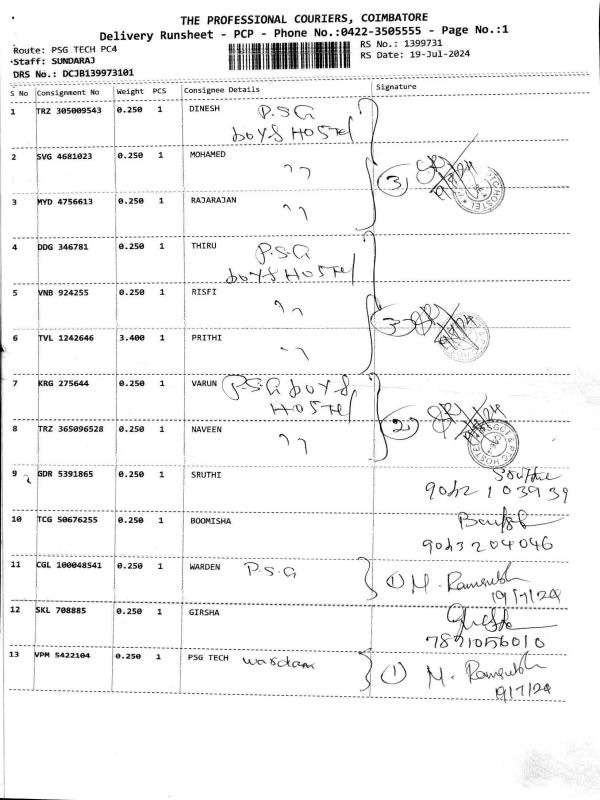 THE PROFESSIONAL COURIERS, COIMBATORE
Delivery Runsheet - PCP - Phone No.:0422-3505555 - Page No.:1
Route: PSG TECH PC4
Staff: SUNDARAJ
DRS No.: DCJB139973101
RS No.: 1399731
RS Date: 19-Jul-2024
S No Consignment No Weight PCS Consignee Details Signature
1 TRZ 305009543 0.250 1 DINESH P.S.G
boys HOSTel
2 SVG 4681023 0.250 1 MOHAMED ,, 3
3 MYD 4756613 0.250 1 RAJARAJAN ,,
4 DDG 346781 0.250 1 THIRU P.S.G
boys HOSTel
5 VNB 924255 0.250 1 RISFI ,, 3
6 TVL 1242646 3.400 1 PRITHI ,,
7 KRG 275644 0.250 1 VARUN P.S.G boys
HOSTel
8 TRZ 365096528 0.250 1 NAVEEN ,, 2
9 GDR 5391865 0.250 1 SRUTHI
10 TCG 50676255 0.250 1 BOOMISHA
11 CGL 100048541 1 0.250 1 WARDEN P.S.G 1 M.
19/7/24
12 SKL 708885 0.250 1 GIRSHA
13 VPM 5422104 0.250 1 PSG TECH wardam 1 M.
19/7/24